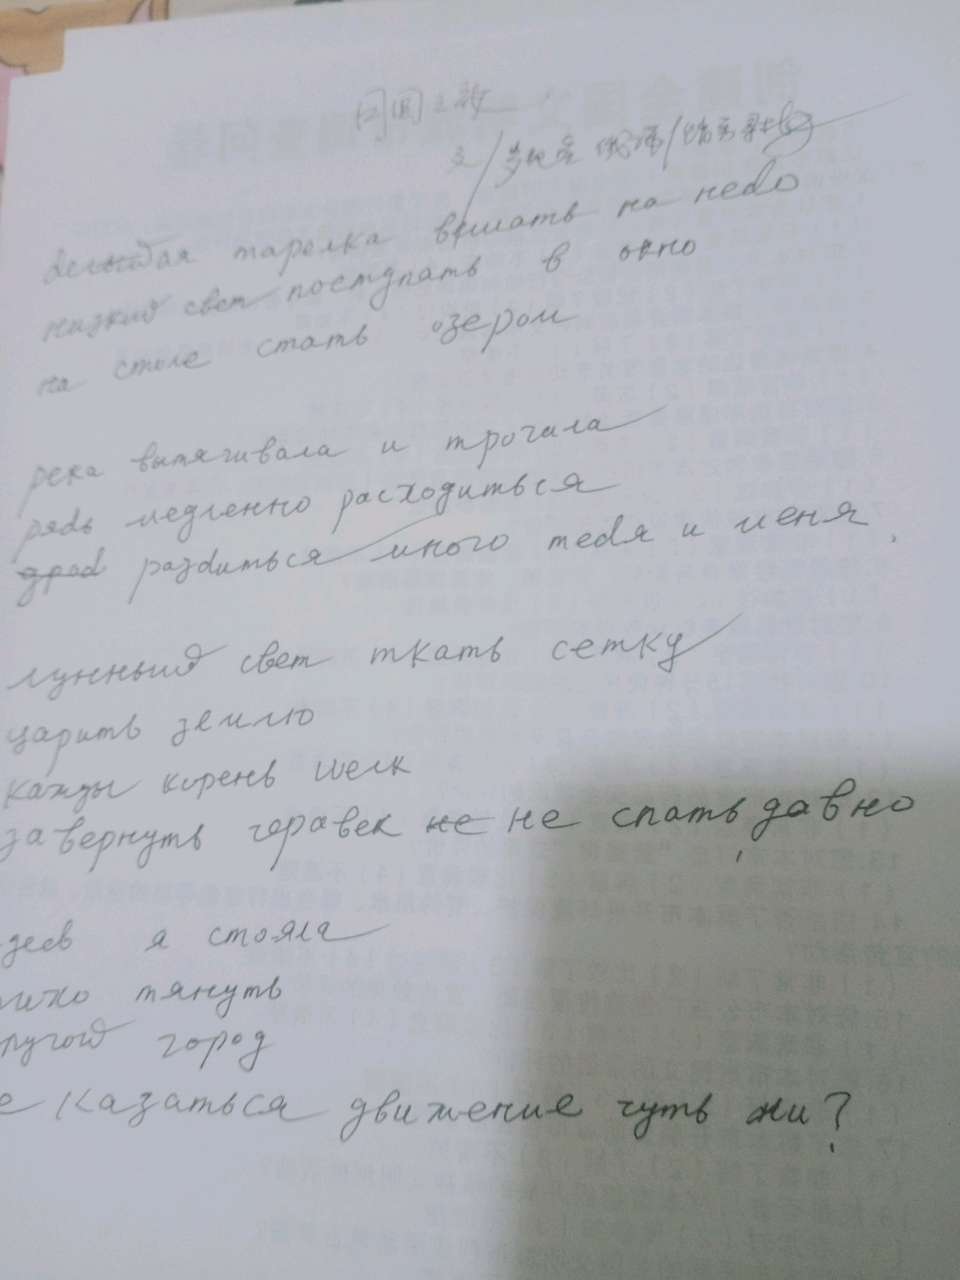 тарелка вешать на небо
низкий свет поступать в окно
на столе стать озером
река вытягивала и трогала
рябь медленно расходиться
разбиться много тебя и меня.
лунный свет ткать сетку
царить землю
кажды корень шелк
завернуть не не спать, давно
здесь я стояла
тихо тянуть
другой город
не казаться движение чуть жи?